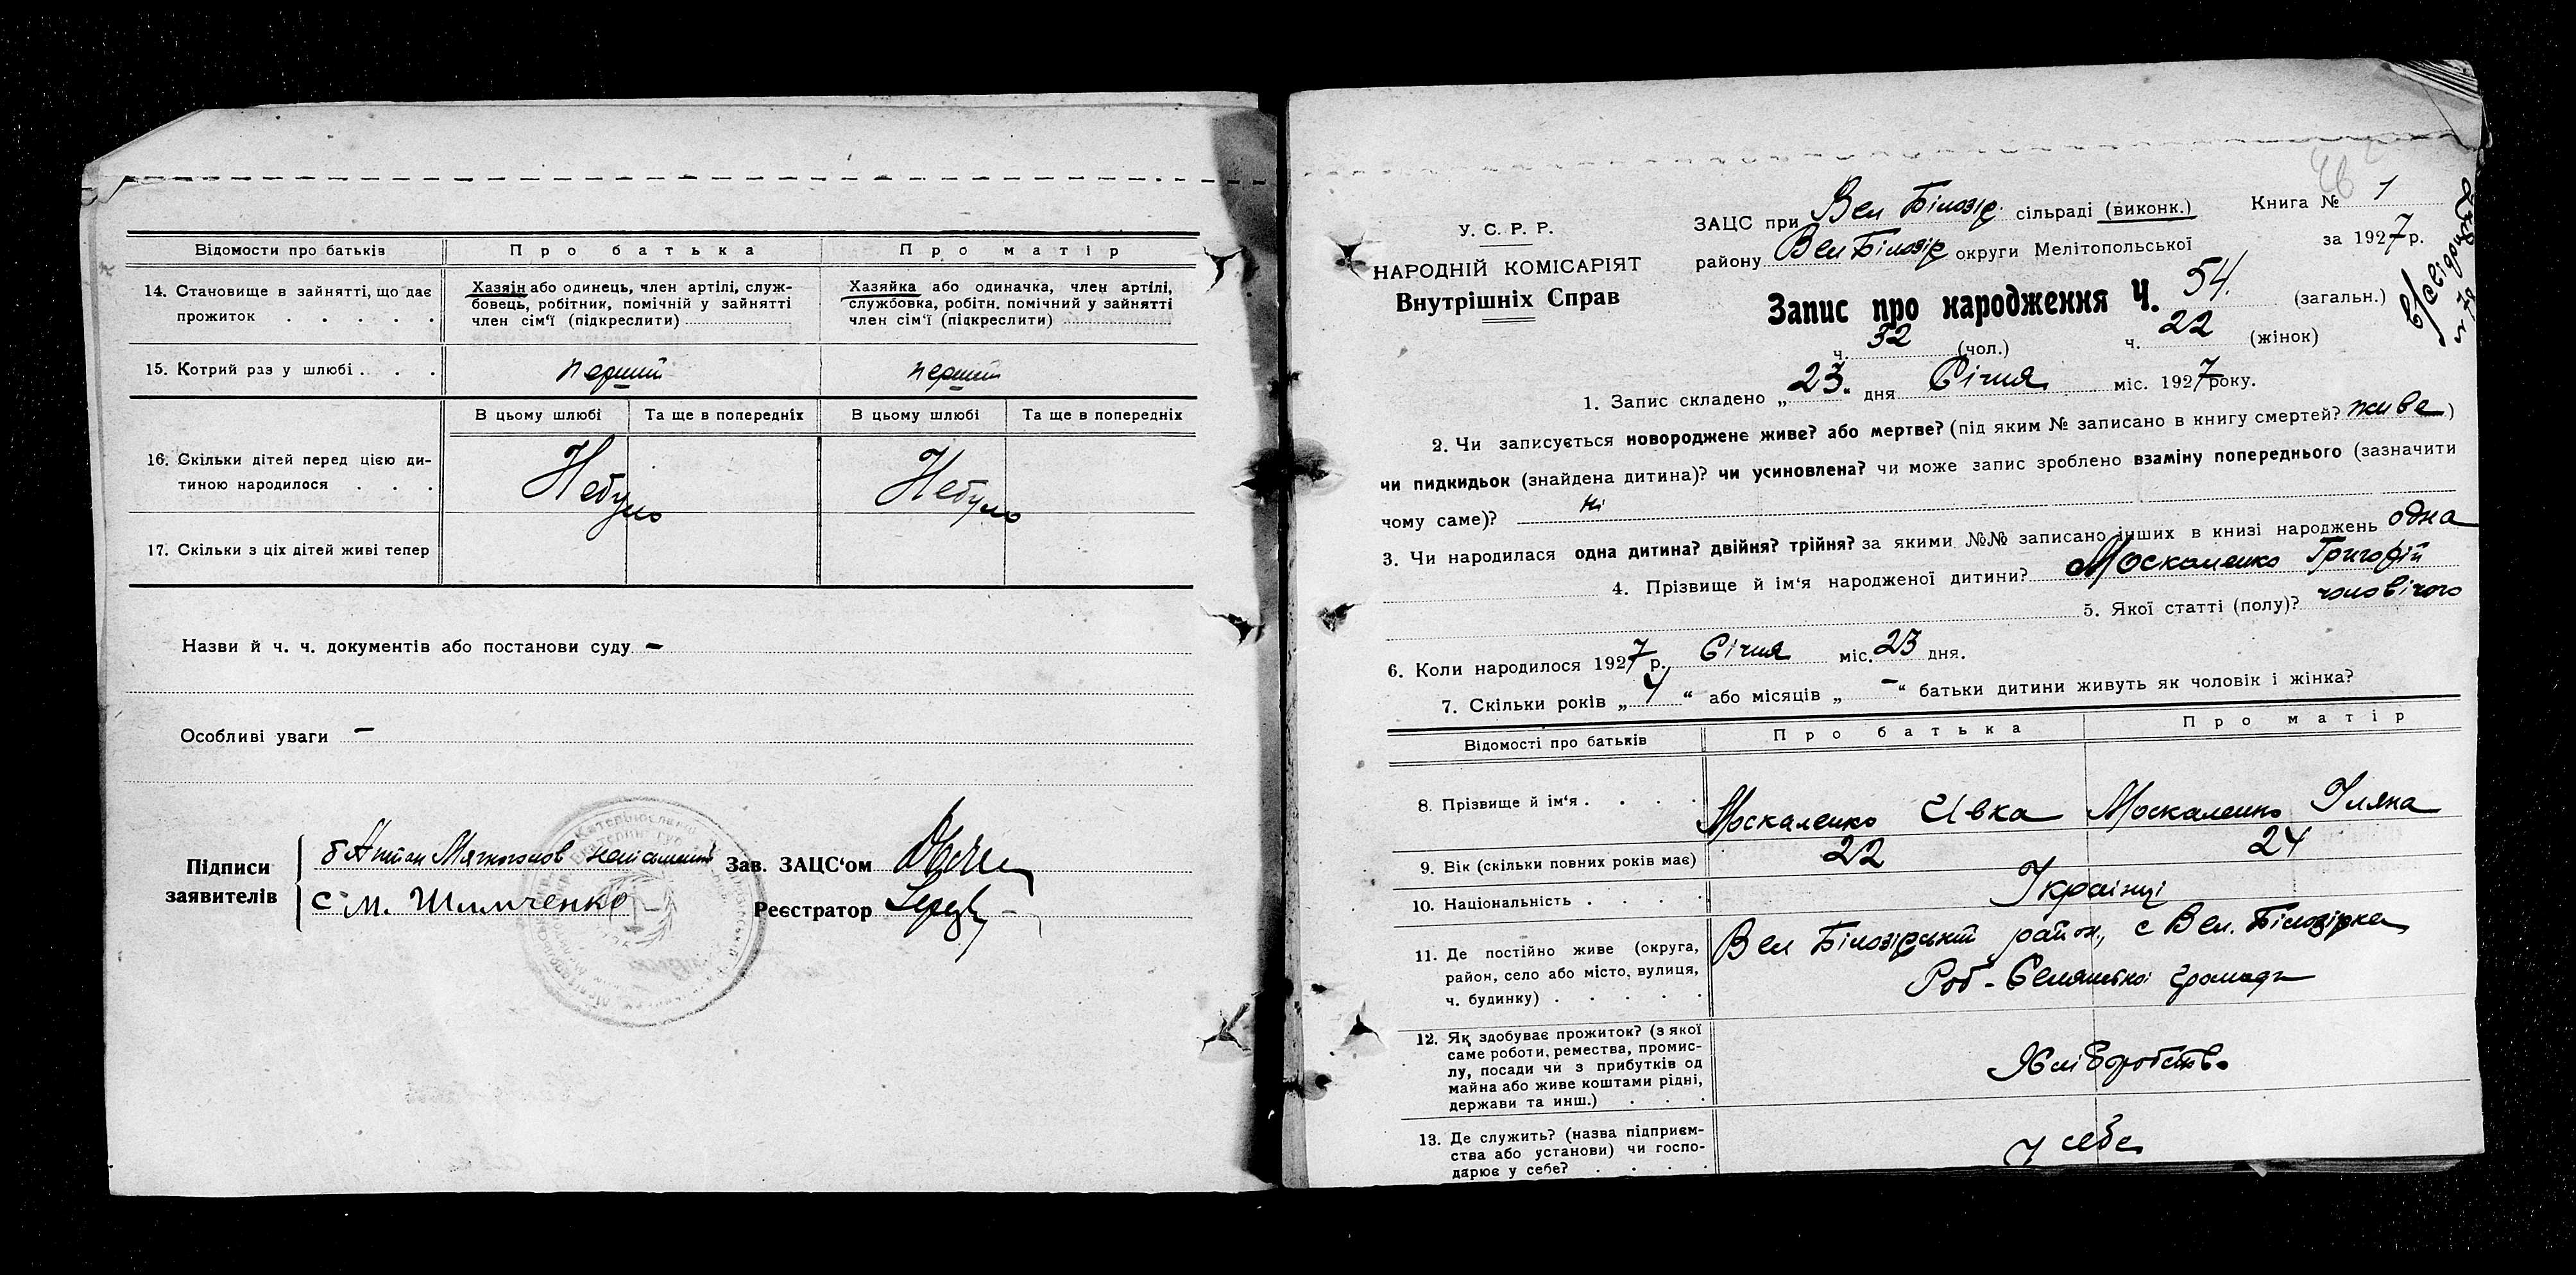 Відомости про батьків
Про батька
Про матір
14. Становище в зайнятті, що дає
прожиток . . . . .
Хазяін або одинець, член артілі, служ-
бовець, робітник, помічній у зайнятті
член сім'ї (підкреслити)
Хазяйка або одиначка, член артілі,
службовка, робітн. помічний у зайнятті
член сім'ї (підкреслити)
15. Котрий раз у шлюбі . . .
перший
перший
В цьому шлюбі
Та ще в попередніх
В цьому шлюбі
Та ще в попередніх
16. Скільки дітей перед цією ди-
тиною народилося . . .
Небуло
Небуло
17. Скільки з ціх дітей живі тепер
Назви й ч. ч. документів або постанови суду –
Особливі уваги –
Підписи
заявителів
с. м. Шимченко
Зав. ЗАЦС'ом
Реєстратор
У. С. Р. Р.
НАРОДНІЙ КОМІСАРІЯТ
Внутрішніх Справ
ЗАЦС при Вел Білозір сільраді (виконк.)
району Вел Білозір округи Мелітопольської
Книга № 1
за 1927 р.
Запис про народження Ч. 54. (загальн.)
ч. 32 (чол.) ч. 22 (жінок)
1. Запис складено „23“ дня Січня міс. 1927 року.
2. Чи записується новороджене живе? або мертве? (під яким № записано в книгу смертей? живе)
чи пидкидьок (знайдена дитина)? чи усиновлена? чи може запис зроблено взаміну попереднього (зазначити
чому саме)? Ні
3. Чи народилася одна дитина? двійня? трійня? за якими №№ записано інших в книзі народжень одна
4. Прізвище й ім'я народженої дитини? Москаленко Григорій
5. Якої статті (полу)? чоловічого
6. Коли народилося 1927 р. Січня міс. 23 дня.
7. Скільки років „4“ або місяців „–“ батьки дитини живуть як чоловік і жінка?
Відомості про батьків
Про батька
Про матір
8. Прізвище й ім'я . . . .
Москаленко Ивка
Москаленко Уляна
9. Вік (скільки повних років має)
22
24
10. Національність . . . .
Українці
11. Де постійно живе (округа,
район, село або місто, вулиця,
ч. будинку) . . . . .
Вел Білозірський район, с Вел. Білозірка
Роб-Селянської громади
12. Як здобуває прожиток? (з якої
саме роботи, ремества, промис-
лу, посади чи з прибутків од
майна або живе коштами рідні,
держави та инш.) . . .
Хліборобство
13. Де служить? (назва підприєм-
ства або установи) чи госпо-
дарює у себе? . . . .
У себе